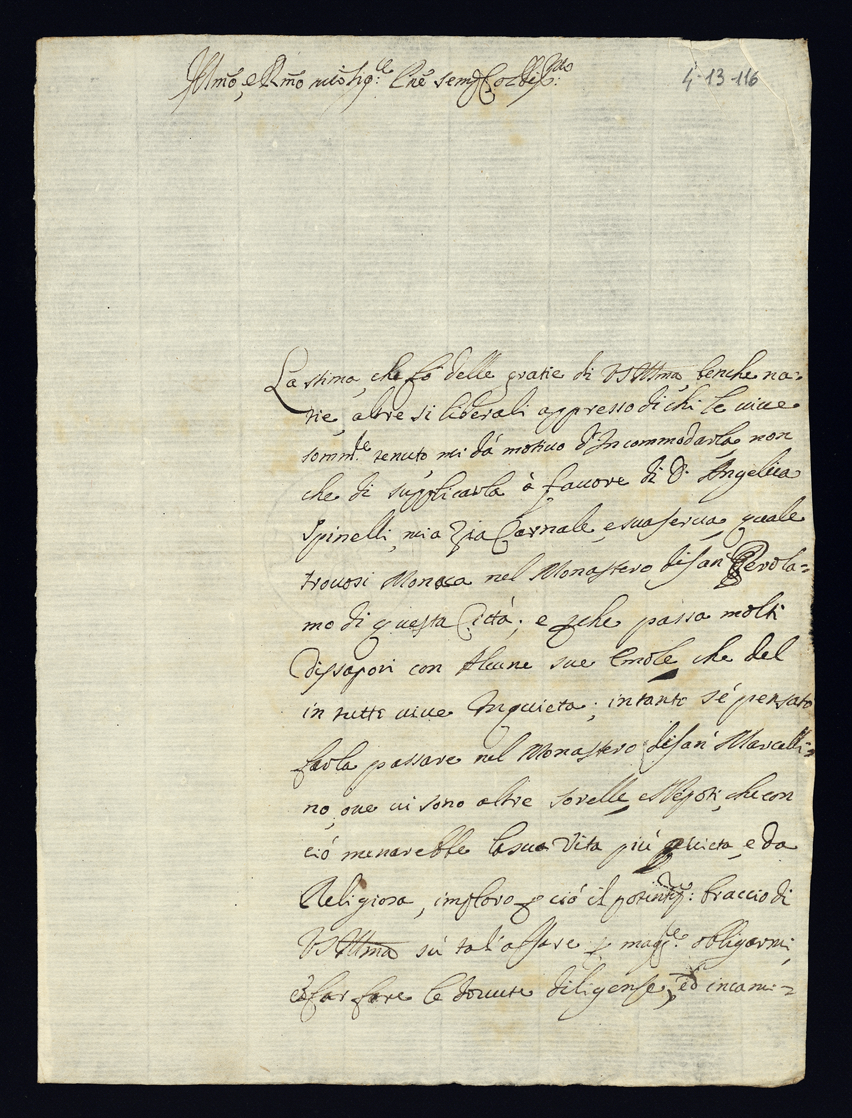 Illmo, e Rmo mio Sigr.e Pne semp Colldis.mo
4-13-116
La stima, che fò delle gratie di VS Illma, benche na:
tie, altre si liberali appresso di chi le uiue
somm.te tenuto mi dà motiuo d'Incommodarla non
che di supplicarla à fauore di D. Angelica
Spinelli, mia Zia Carnale, e sua serua, quale
trouosi Monaca nel Monastero di San Gerola=
mo di questa Città; e pche passa molti
dissapori con Alcune sue Emole, che del
in tutto uiue Inquieta; intanto s'è pensato
farla passare nel Monastero di San Marcelli=
no, oue ui sono altre sorelle, e Nepoti, che con
ciò menarebbe la sua Vita più quieta, e da
Religiosa, imploro p ciò il potentis: braccio di
VS Illma sù tal'affare p magg.e obligarmi,
è far fare le douute diligense, ed incami=